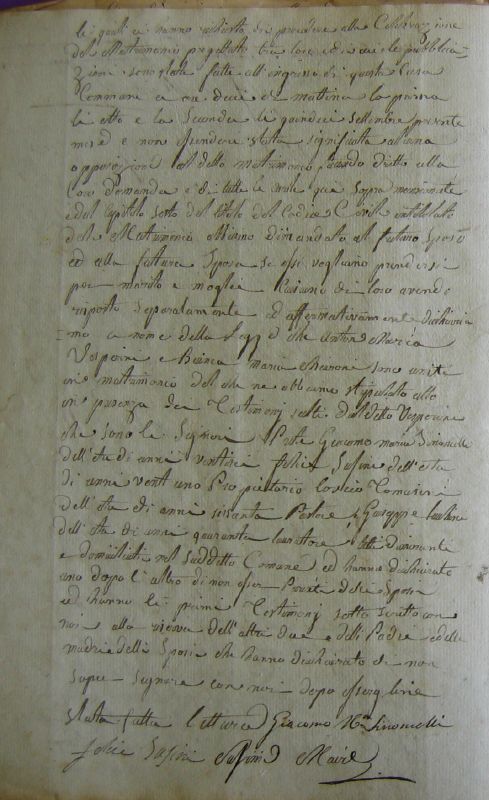 li quali ci hanno richiesto di procedere alla Celebrazione
del Matrimonio progettato tra loro e di cui le pubblica-
zione sono state fatte all'ingresso di questa Casa
Commune a ore dieci di mattina la prima
li otto e la Seconda li quindeci Settembre presente
mese e non essendovi stata significata alcuna
opposizione al detto matrimonio facendo dritto alla
loro domanda e di tutte le carte qua sopra menzionate
e del Capitolo sesto del titolo del Codice Civile intitolato
del Matrimonio abbiamo dimandato al futuro sposo
ed alla futura Sposa se essi vogliano prendersi
per marito e moglie Ciascuno di loro avendo
risposto separatamente ed affermativamente dichiaria-
mo a nome della Legge che Anton Maria
Vesperini e Bianca Maria sono uniti
in matrimonio del che ne abbiamo stipulato atto
in presenza dei Testimonj del detto
che sono li Signori Giacomo Maria Simonelli
dell'età di anni Felice Susini dell'età
di anni vent'uno Proprietario
dell'età di anni sisanta Giuseppe
dell'età di anni quaranta lavoratore tutti
e domiciliati nel Suddetto Comune ed hanno dichiarato
uno dopo l'altro di non esser Parenti delli Sposi
ed hanno li primi Testimonj sotto scritto con
noi alla riserva dell'altri due e delli Padre e delle
madri delli Sposi che hanno dichiarato di non
sapere Segnare con noi dopo essergline
stata fatta lettura Giacomo Mª Simonelli
Felice Susini Susini Maire